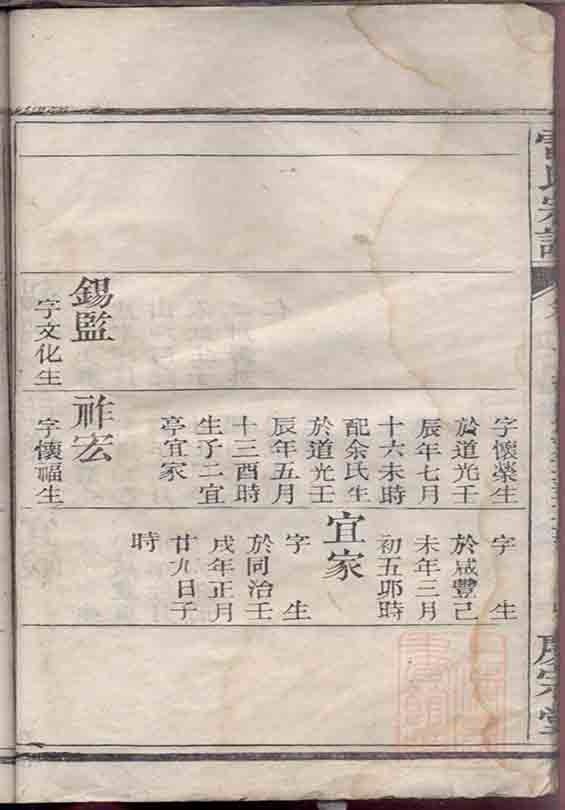 氏宗譜
錫監
字文化生
字懷榮生
於道光壬
辰年七月
十六未時
配余氏生
於道光壬
辰年五月
十三酉時
生子二宜
亭宜家
祚宏
字懷福生
字 生
於咸豐己
未年三月
初五卯時
宜家
字 生
於同治壬
戌年正月
廿九日子
時